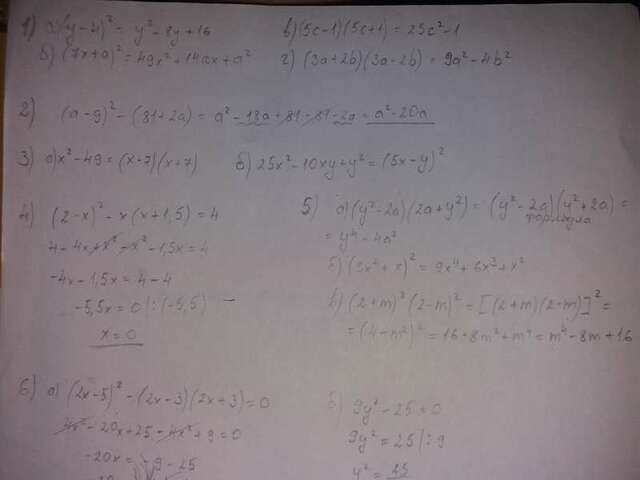 1) а) (y-4)² = y²-8y+16
в) (5c-1)(5c+1) = 25c²-1
б) (7x+a)² = 49x²+14ax+a²
г) (3a+2b)(3a-2b) = 9a²-4b²
2) (a-9)² - (81+2a) = a²-18a+81-81-2a = a²-20a
3) а) x²-49 = (x+7)(x+7)
б) 25x²-10xy+y² = (5x-y)²
4) (2-x)² - x(x+1,5) = 4
4-4x+x²-x²-1,5x=4
-4x-1,5x = 4-4
-5,5x=0 |:(-5,5)
x=0
5) а) (y²-2a)(2a+y²) = (y²-2a)(y²+2a)
формула
= y⁴-4a²
б) (3x²+x)² = 9x⁴+6x³+x²
в) (2+m)²(2-m)² = [(2+m)(2-m)]² =
= (4-m²)² = 16-8m²+m⁴ = m⁴-8m+16
6) а) (2x-5)² - (2x-3)(2x+3)=0
4x²-20x+25-4x²+9=0
-20x = -9-25
б) 9y²-25=0
9y²=25 |:9
y² = 25